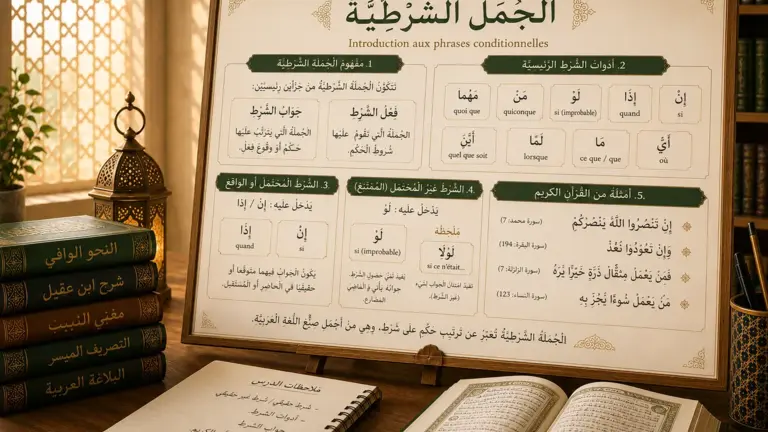 الجُمَل الشَّرْطِيَّة
Introduction aux phrases conditionnelles
1. مَفْهُومُ الجُمْلَة الشَّرْطِيَّة
تَتَكَوَّنُ الجُمْلَةُ الشَّرْطِيَّةُ من جُزْأَيْنِ رَئِيسِيَّيْنِ:
فِعْلُ الشَّرْطِ
الجُمْلَةُ الَّتِي تَقُومُ عَلَيْهَا
شُروطُ الحُكْمِ.
جَوَابُ الشَّرْطِ
الجُمْلَةُ الَّتِي يَتَرَتَّبُ عَلَيْهَا
حُكْمٌ أَوْ وُقُوعُ فِعْلٍ.
2. أَدَوَاتُ الشَّرْطِ الرَّئِيسِيَّة
إِنْ
si
إِذَا
quand
لَوْ
si (improbable)
مَنْ
quiconque
مَهْمَا
quoi que
أَيُّ
où
مَا
ce que / que
لَمَّا
lorsque
أَيَّنَ
quel que soit
3. الشَّرْطُ المُحْتَمَل أو الوَاقِع
يَدْخُلُ عَلَيه: إِنْ / إِذَا
إِنْ
si
إِذَا
quand
يَكُونُ الجَوَابُ فِيهِمَا مُتَوَقَّعًا أَو
حَقِيقِيًا فِي الحَاضِرِ أَو المُسْتَقْبَلِ.
4. الشَّرْطُ غَيْرُ المُحْتَمَلِ (المُمْتَنِع)
يَدْخُلُ عَلَيهِ: لَوْ
مُلَاحَظَة
لَوْ
si (improbable)
لَوْلَا
si ce n'était...
5. أَمْثِلَة من القُرْآنِ الكَرِيم
إِنْ تَنْصُرُوا اللَّهَ يَنْصُرْكُمْ (سورة محمد: 7)
وَإِنْ تَعُودُوا نَعُدْ (سورة البقرة: 194)
فَمَنْ يَعْمَلْ مِثْقَالَ ذَرَّةٍ خَيْرًا يَرَهُ (سورة الزلزلة: 7)
مَنْ يَعْمَلْ سُوءًا يُجْزَ بِهِ (سورة النساء: 123)
الجُمْلَةُ الشَّرْطِيَّةُ تُعَبِّرُ عَن تَرتِيبِ حُكْمٍ عَلى شَرْطٍ، وهِيَ مِنْ أَجْمَلِ صِيَغِ اللُّغَةِ العَرَبِيَّة.
النحو الوافي
شرح ابن عقيل
مغني اللبيب
التصريف الميسر
البلاغة العربية
ملاحظات الدرس
- شرط حقيقي / شرط غير حقيقي
- أدوات الشرط
- جواب الشرط